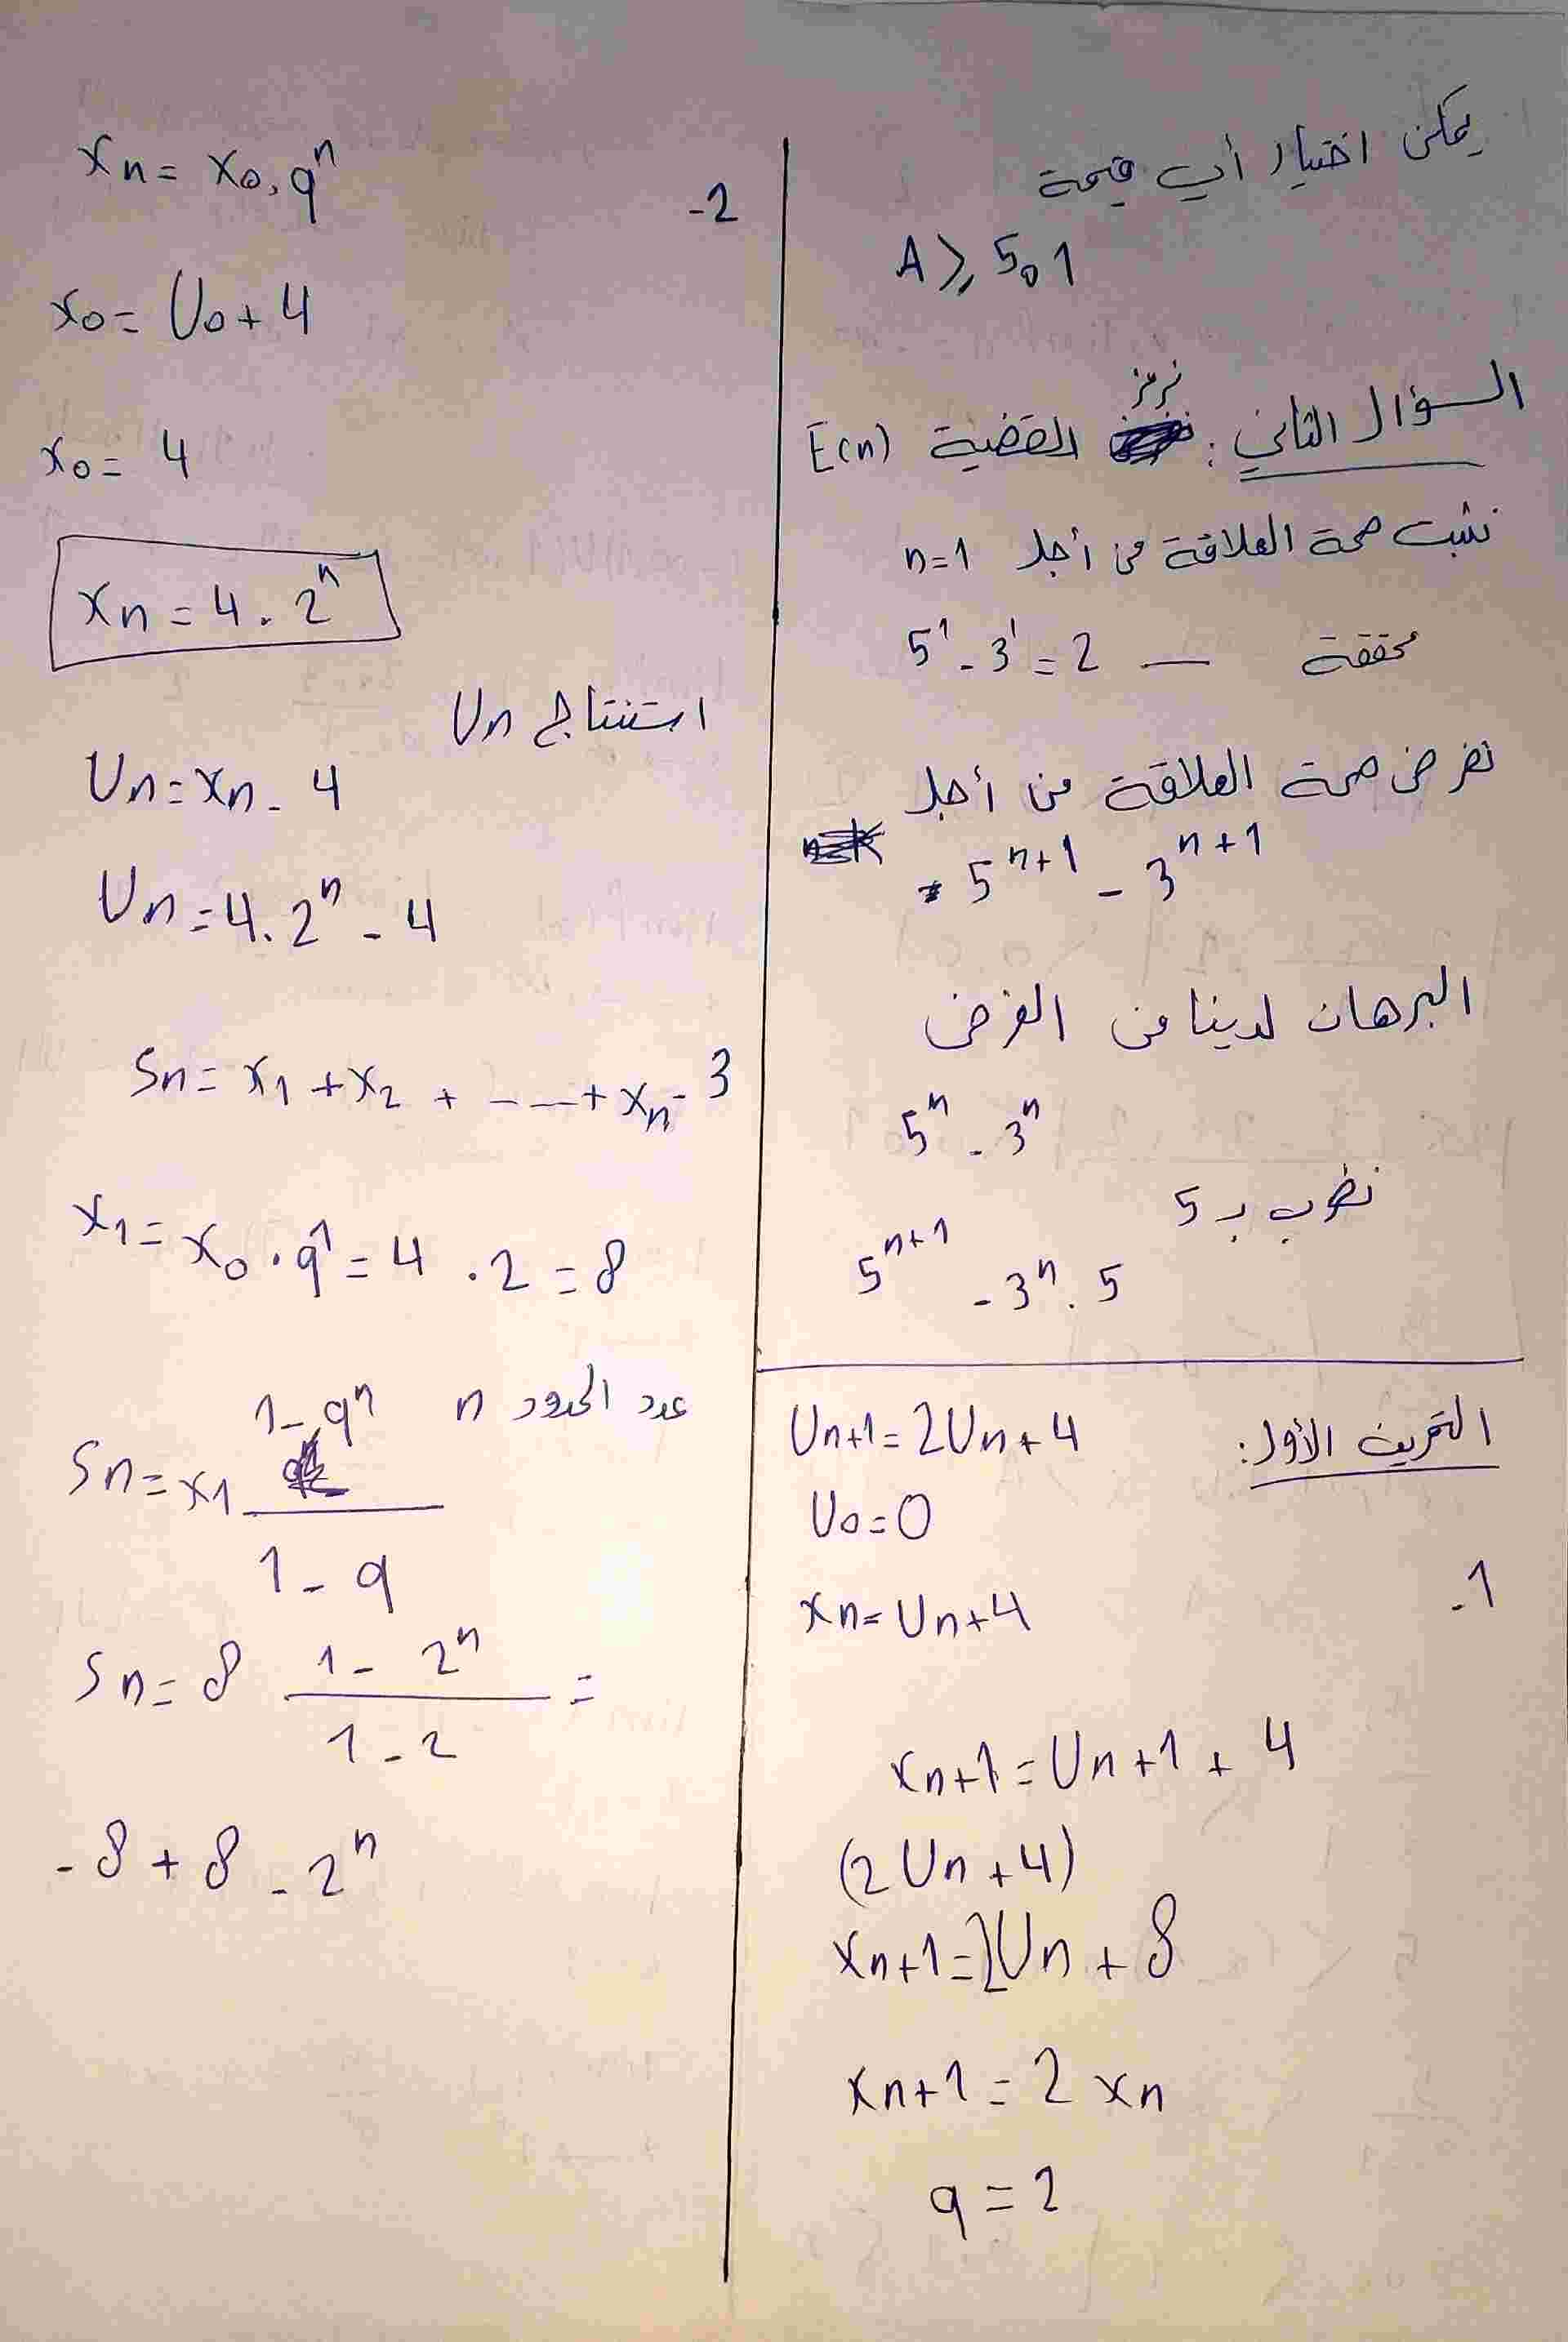 يمكن اختيار أي قيمة
A ⩾ 5,1
السؤال الثاني : نرمز القضية E(n)
نثبت صحة العلاقة من أجل n=1
5¹ - 3¹ = 2 — محققة
نفرض صحة العلاقة من أجل
5ⁿ⁺¹ - 3ⁿ⁺¹
البرهان لدينا من الفرض
5ⁿ - 3ⁿ
نضرب بـ 5
5ⁿ⁺¹ - 3ⁿ . 5
التمرين الأول: Un+1 = 2Un + 4
U0 = 0
-1 xn = Un + 4
xn+1 = Un+1 + 4
(2Un + 4)
xn+1 = 2Un + 8
xn+1 = 2 xn
q = 2
-2 xn = x0 . qⁿ
x0 = U0 + 4
x0 = 4
xn = 4 . 2ⁿ
استنتاج Un
Un = xn - 4
Un = 4 . 2ⁿ - 4
-3 Sn = x1 + x2 + ---- + xn
x1 = x0 . q¹ = 4 . 2 = 8
عدد الحدود n
Sn = x1 (1 - qⁿ) / (1 - q)
Sn = 8 (1 - 2ⁿ) / (1 - 2) =
-8 + 8 - 2ⁿ